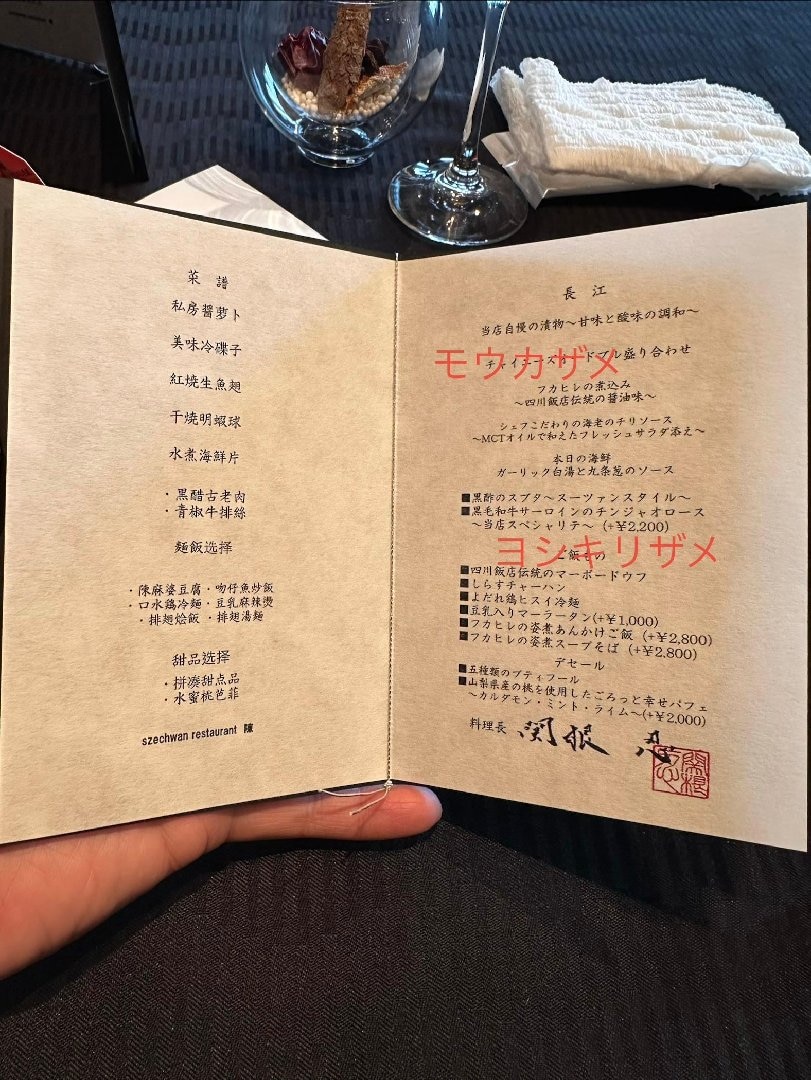 菜 譜
私房醤萝卜
美味冷碟子
紅燒生魚翅
干燒明蝦球
水煮海鮮片
・黒醋古老肉
・青椒牛排絲
麵飯选择
・陳麻婆豆腐・吻仔魚炒飯
・口水鶏冷麵・豆乳麻辣燙
・排翅烩飯・排翅湯麺
甜品选择
・拼凑甜点品
・水蜜桃芭菲
szechwan restaurant 陳
長 江
当店自慢の漬物～甘味と酸味の調和～
モウカザメ
チャイニーズオードブル盛り合わせ
フカヒレの煮込み
～四川飯店伝統の醤油味～
シェフこだわりの海老のチリソース
～MCTオイルで和えたフレッシュサラダ添え～
本日の海鮮
ガーリック白湯と九条葱のソース
■黒酢のスブタ～スーツァンスタイル～
■黒毛和牛サーロインのチンジャオロース
～当店スペシャリテ～ (+￥2,200)
ヨシキリザメ
ご飯もの
■四川飯店伝統のマーボードウフ
■しらすチャーハン
■よだれ鶏ヒスイ冷麺
■豆乳入りマーラータン(+￥1,000)
■フカヒレの姿煮あんかけご飯 (+￥2,800)
■フカヒレの姿煮スープそば (+￥2,800)
デセール
■五種類のプティフール
■山梨県産の桃を使用したごろっと幸せパフェ
～カルダモン・ミント・ライム～(+￥2,000)
料理長 関根 忍